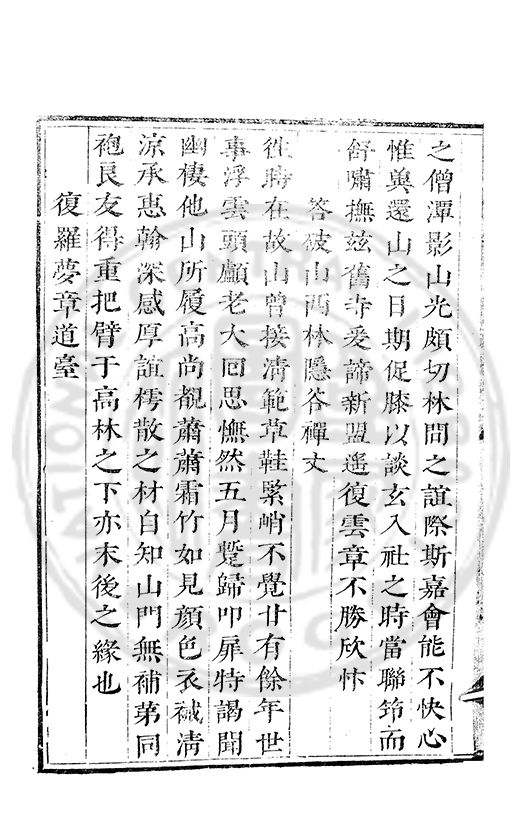 之僧潭影山光頗切林間之誼際斯嘉會能不快心
惟兾還山之日期促膝以談玄入社之時當聯筇而
舒嘯撫茲舊寺爰諦新盟遙復雲章不勝欣忭
答破山西林隱谷禪丈
徃時在故山曾接淸範草鞋緊峭不覺廿有餘年世
事浮雲頭顱老大回思憮然五月蹔歸叩扉特謁聞
幽棲他山所履高尚覩蕭蕭霜竹如見顏色衣裓淸
涼承惠翰深感厚誼樗散之材自知山門無補苐同
袍良友得重把臂于高林之下亦末後之緣也
復羅夢章道臺